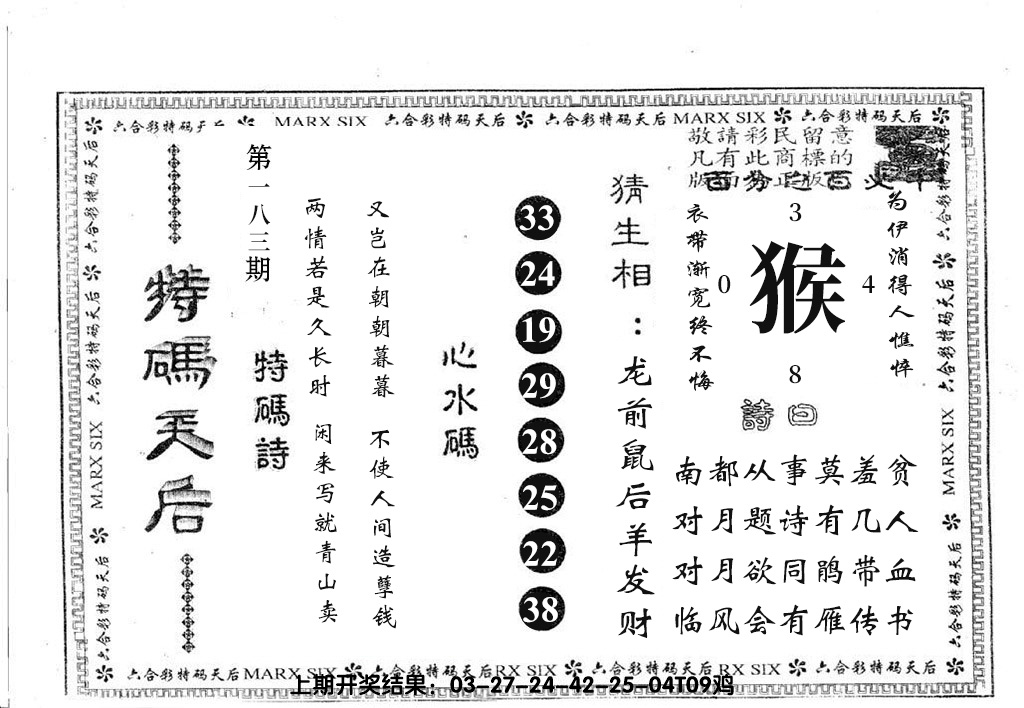 六合彩特码天后 MARX SIX 六合彩特码天后 六合彩特码天后 MARX SIX 六合彩特码天后
敬請彩民留意
凡有此商標的
版面为正版
为伊消得人憔悴
衣带渐宽终不悔
3
0 猴 4
8
詩曰
南都从事莫羞贫
对月题诗有几人
对月欲同鹃带血
临风会有雁传书
猜生相：龙前鼠后羊发财
33
24
19
29
28
25
22
38
心水碼
又岂在朝朝暮暮 不使人间造孽钱
两情若是久长时 闲来写就青山卖
第一八三期
特碼詩
特碼天后
六合彩特码天后 六合彩特码天后 MARX SIX 六合彩特码天后
六合彩特码天后 六合彩特码天后 MARX SIX 六合彩特码天后
六合彩特码天后 MARX SIX 六合彩特码天后 RX SIX 六合彩特码天后 RX SIX 六合彩特码天后
上期开奖结果：03-27-24-42-25-04T09鸡